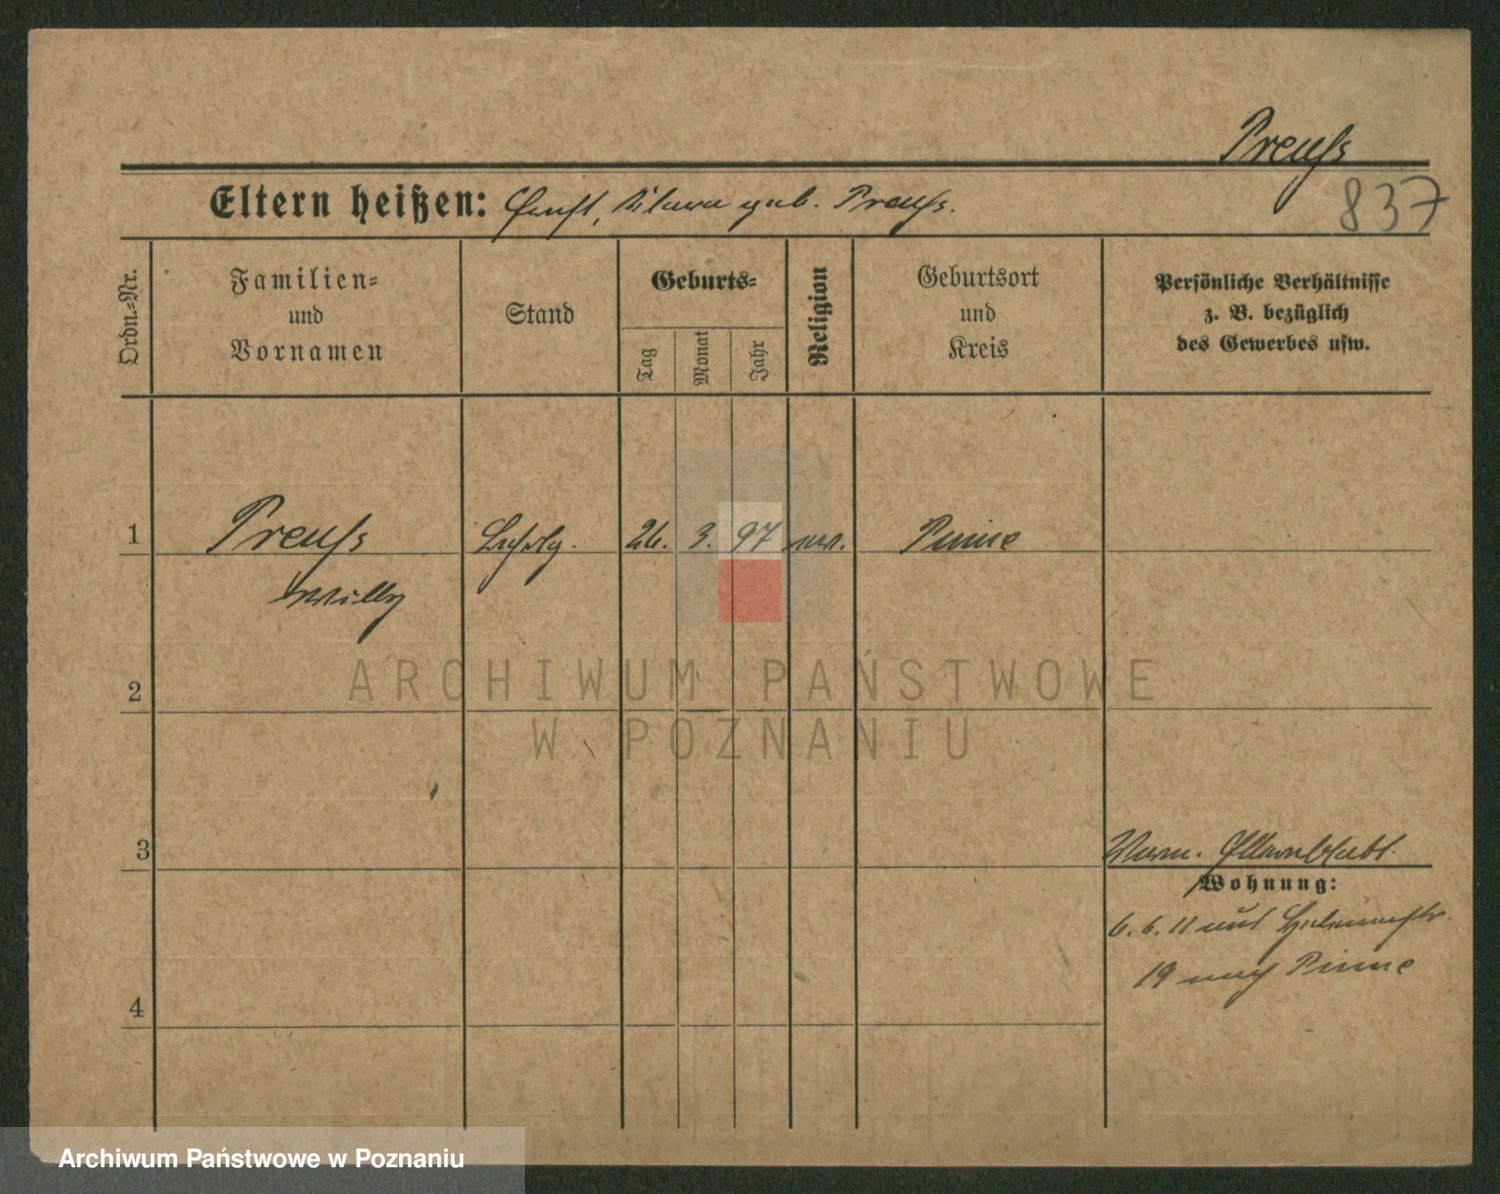 Preuß
Eltern heißen: Ernst, Klara geb. Preuß.
837
Ordn.-Nr.
Familien-
und
Vornamen
Stand
Geburts-
Tag
Monat
Jahr
Religion
Geburtsort
und
Kreis
Persönliche Verhältnisse
z. B. bezüglich
des Gewerbes usw.
1
Preuß
26. 3. 97
Pinne
Willy
2
ARCHIWUM PAŃSTWOWE
W POZNANIU
3
Elternblatt.
Wohnung:
6. 6. 11 aus
19 nach Pinne
4
Archiwum Państwowe w Poznaniu